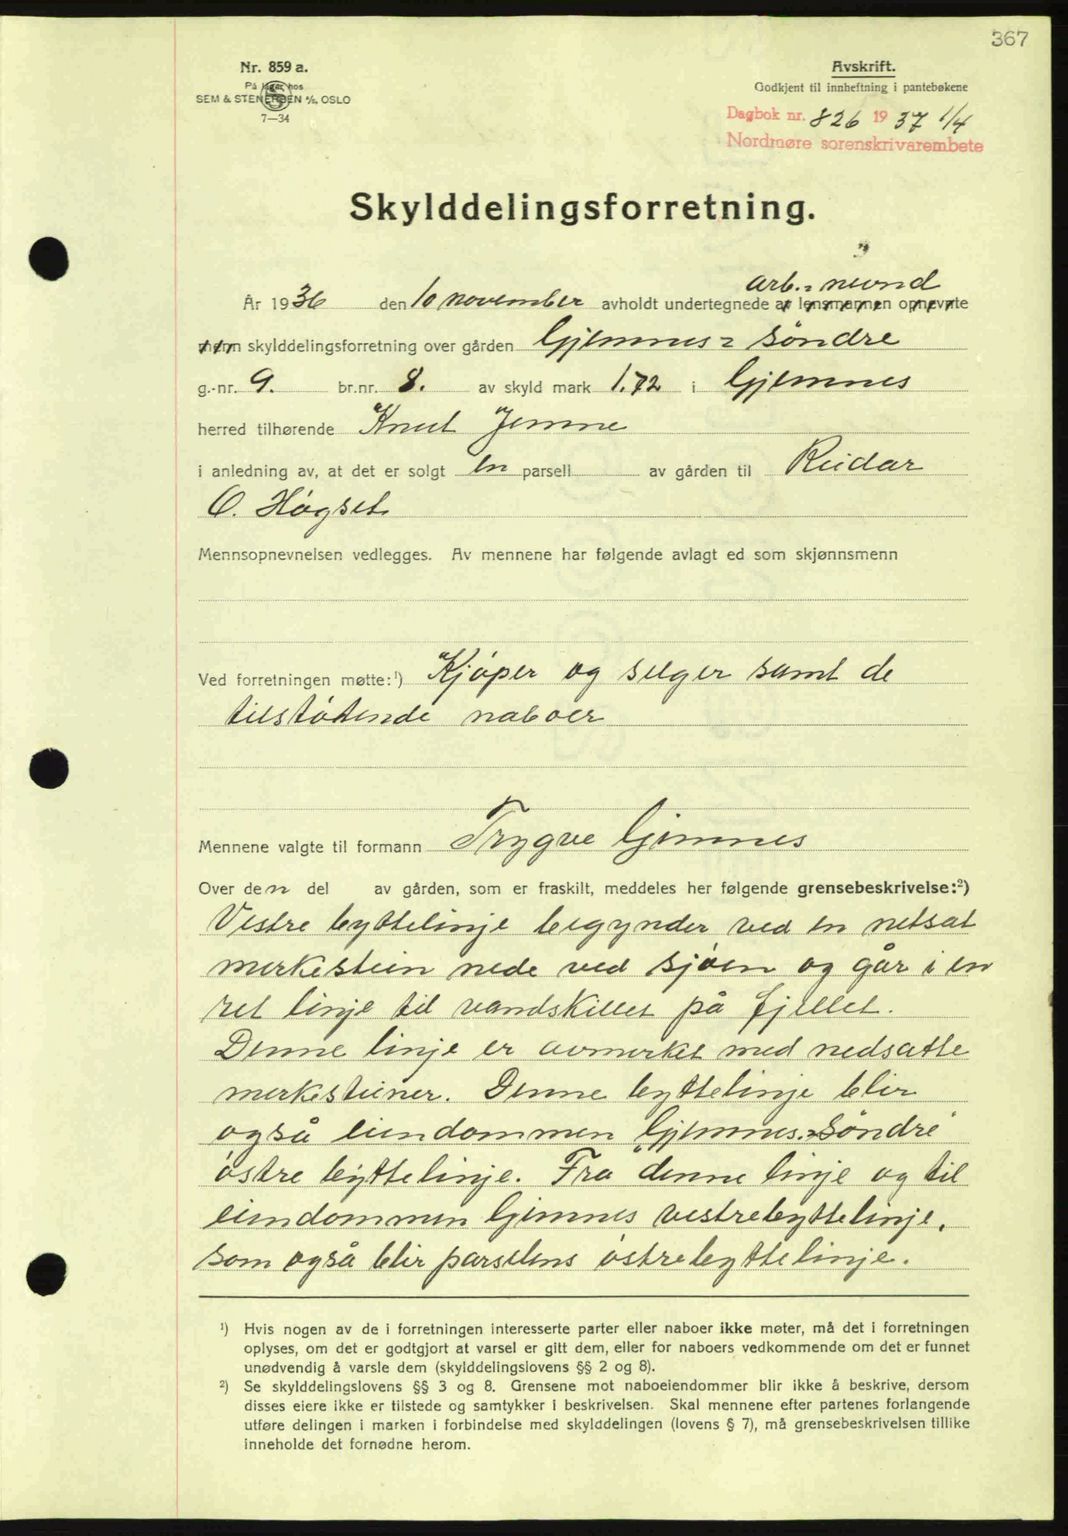 367
Nr. 859 a.
På lager hos
SEM & STENERSEN A/S, OSLO
7—34
Avskrift.
Godkjent til innheftning i pantebøkene
Dagbok nr. 826 1937 1/4
Nordmøre sorenskrivarembete
Skylddelingsforretning.
arb.=nevnd
År 1936 den 10 november avholdt undertegnede av lensmannen opnevnte
menn skylddelingsforretning over gården Gjemnes=søndre
g.-nr. 9. br.nr. 8. av skyld mark 1.72 i Gjemnes
herred tilhørende Knut Jemne
i anledning av, at det er solgt en parsell av gården til Reidar
O. Høgset
Mennsopnevnelsen vedlegges. Av mennene har følgende avlagt ed som skjønnsmenn
Ved forretningen møtte:¹) Kjøper og selger samt de
tilstøtende naboer
Mennene valgte til formann Trygve Gimnes
Over den del av gården, som er fraskilt, meddeles her følgende grensebeskrivelse:²)
Vestre byttelinje begynder ved en netsat
merkestein nede ved sjøen og går i en
ret linje til vandskillet på fjellet.
Denne linje er avmerket med nedsatte
merkesteiner. Denne byttelinje blir
også eiendommen Gjemnes.=søndre
østre byttelinje. Fra denne linje og til
eiendommen Gimnes vestrebyttelinje,
som også blir parselens østrebyttelinje.
¹) Hvis nogen av de i forretningen interesserte parter eller naboer ikke møter, må det i forretningen
oplyses, om det er godtgjort at varsel er gitt dem, eller for naboers vedkommende om det er funnet
unødvendig å varsle dem (skylddelingslovens §§ 2 og 8).
²) Se skylddelingslovens §§ 3 og 8. Grensene mot naboeiendommer blir ikke å beskrive, dersom
disses eiere ikke er tilstede og samtykker i beskrivelsen. Skal mennene efter partenes forlangende
utføre delingen i marken i forbindelse med skylddelingen (lovens § 7), må grensebeskrivelsen tillike
inneholde det fornødne herom.